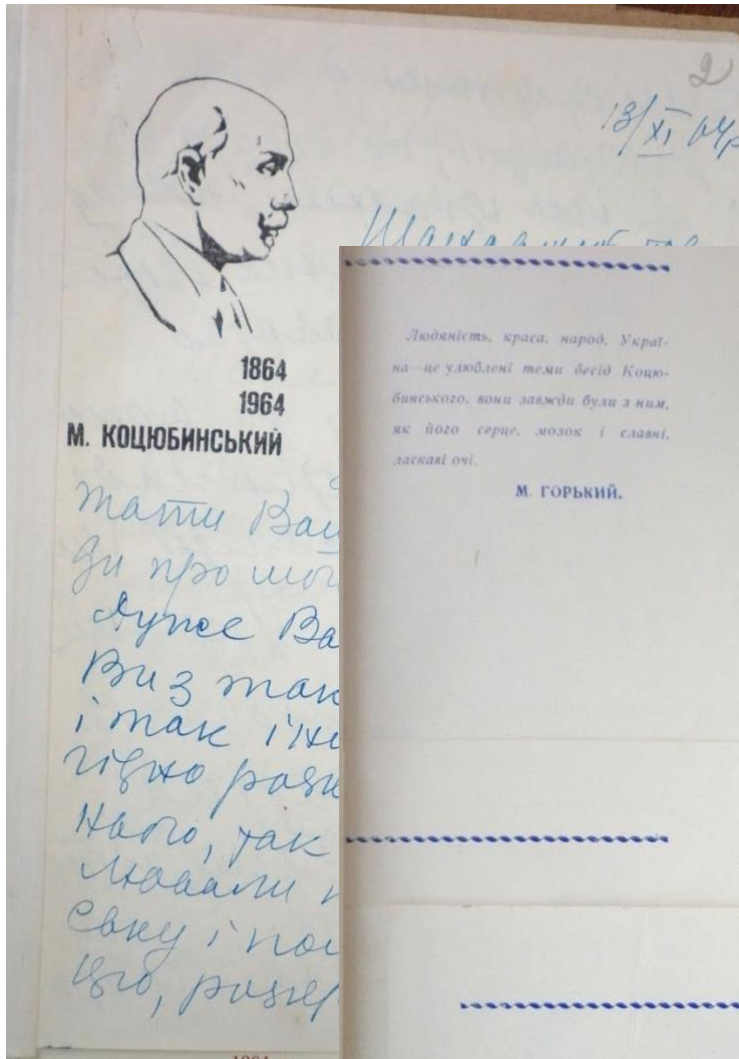 2
13/XI 64р
Шановний тов
1864
1964
М. КОЦЮБИНСЬКИЙ
жати Ваш
ди про мої
Дуже Ва
Ви з так
і так
гідно
ного, так
лювали
і
Людяність, краса, народ, Украї-
на—це улюблені теми бесід Коцю-
бинського, вони завжди були з ним,
як його серце, мозок і славні,
ласкаві очі.
М. ГОРЬКИЙ.